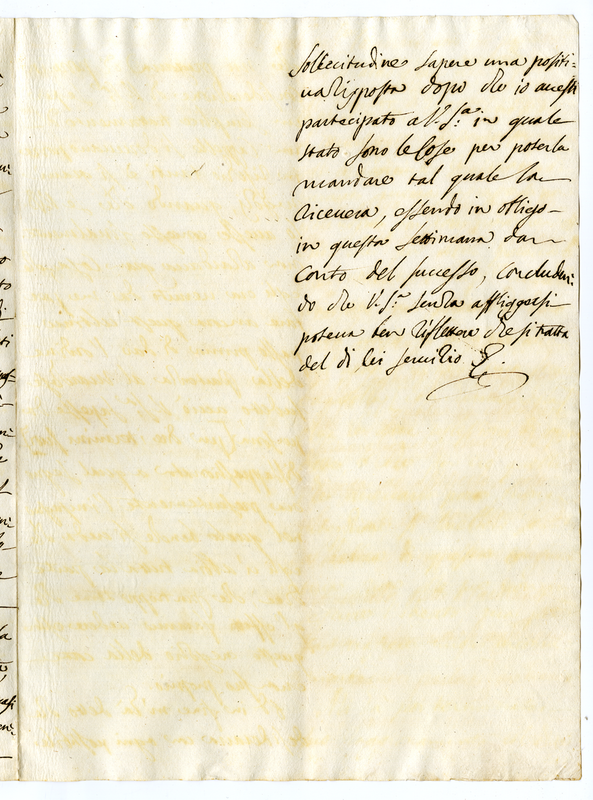 Sollecitudine sapere una positi=
va Risposta dopo che io avessi
partecipato a V. S.ª in quale
stato sono le Cose per poterla
mandare tal quale la
riceverà, essendo in obligo
in questa settimana dar
Conto del successo, concluden=
do che V. S.ª senza affliggersi
poteva ben riflettere che si tratta
del di lei servizio